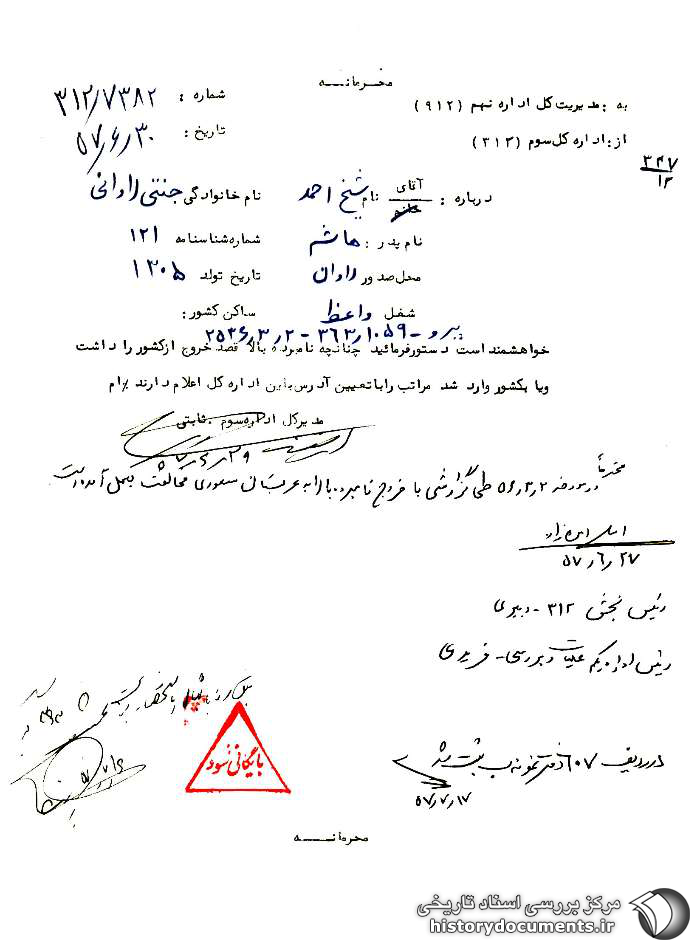 محرمانــه
به : مدیریت کل اداره نهم (۹۱۲)
شماره : ۳۱۲/۷۳۸۲
از: اداره کل سوم (۳۱۲)
تاریخ : ۵۷/۶/۳۰
۳۴۷
۱۲
درباره : آقای خانم نام شیخ احمد نام خانوادگی جنتی لادانی
نام پدر : هاشم شماره شناسنامه ۱۲۱
محل صدور لادان تاریخ تولد ۱۳۰۵
شغل واعظ ساکن کشور :
پیرو - ۳۶۳/۱۰۵۹ - ۲۵۳۶/۳/۲
خواهشمند است دستور فرمائید چنانچه نامبرده بالا قصد خروج ازکشور را داشت
ویا بکشور وارد شد مراتب را با تعیین آدرس باین اداره کل اعلام دارند
مدیر کل اداره سوم . ثابتی
۵۷/۶/۲۹
محترماً
در مورخه ۵۶/۳/۲ طی گزارشی با خروج نامبرده بالا به عربستان سعودی مخالفت بعمل آمده است
۵۷/۶/۲۷
رئیس بخش ۳۱۲ - دبیری
رئیس اداره یکم عملیات و بررسی - فریدی
در ردیف ۶۰۷ دفتر نمونه ب ثبت شد
۵۷/۷/۱۷
بایگانی شود
محرمانــه
مرکز بررسی اسناد تاریخی
historydocuments.ir